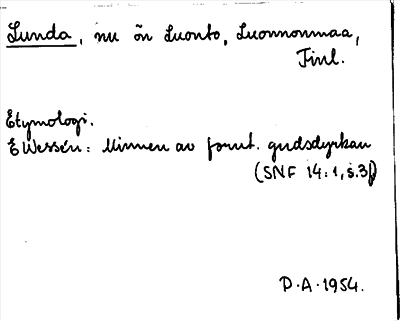 Lunda, nu ön Luonto, Luonnonmaa,
Finl.
Etymologi.
E Wessén: Minnen av fornt. gudsdyrkan
(SNF 14:1, s.3f)
D.A. 1954.